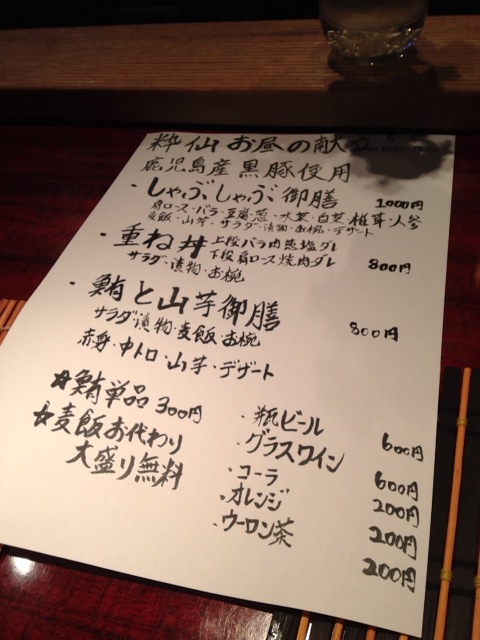 粋仙 お昼の献立
鹿児島産黒豚使用
・しゃぶしゃぶ御膳 1,000円
肩ロース・バラ・豆腐・葱・水菜・白菜・椎茸・人参
麦飯・山芋・サラダ・漬物・お椀・デザート
・重ね丼 上段バラ肉葱塩ダレ
下段肩ロース焼肉ダレ 800円
サラダ・漬物・お椀
・鮪と山芋御膳 800円
サラダ・漬物・麦飯・お椀
赤身・中トロ・山芋・デザート
☆鮪単品 300円
☆麦飯お代わり
大盛り無料
・瓶ビール 600円
・グラスワイン 600円
・コーラ 200円
・オレンジ 200円
・ウーロン茶 200円